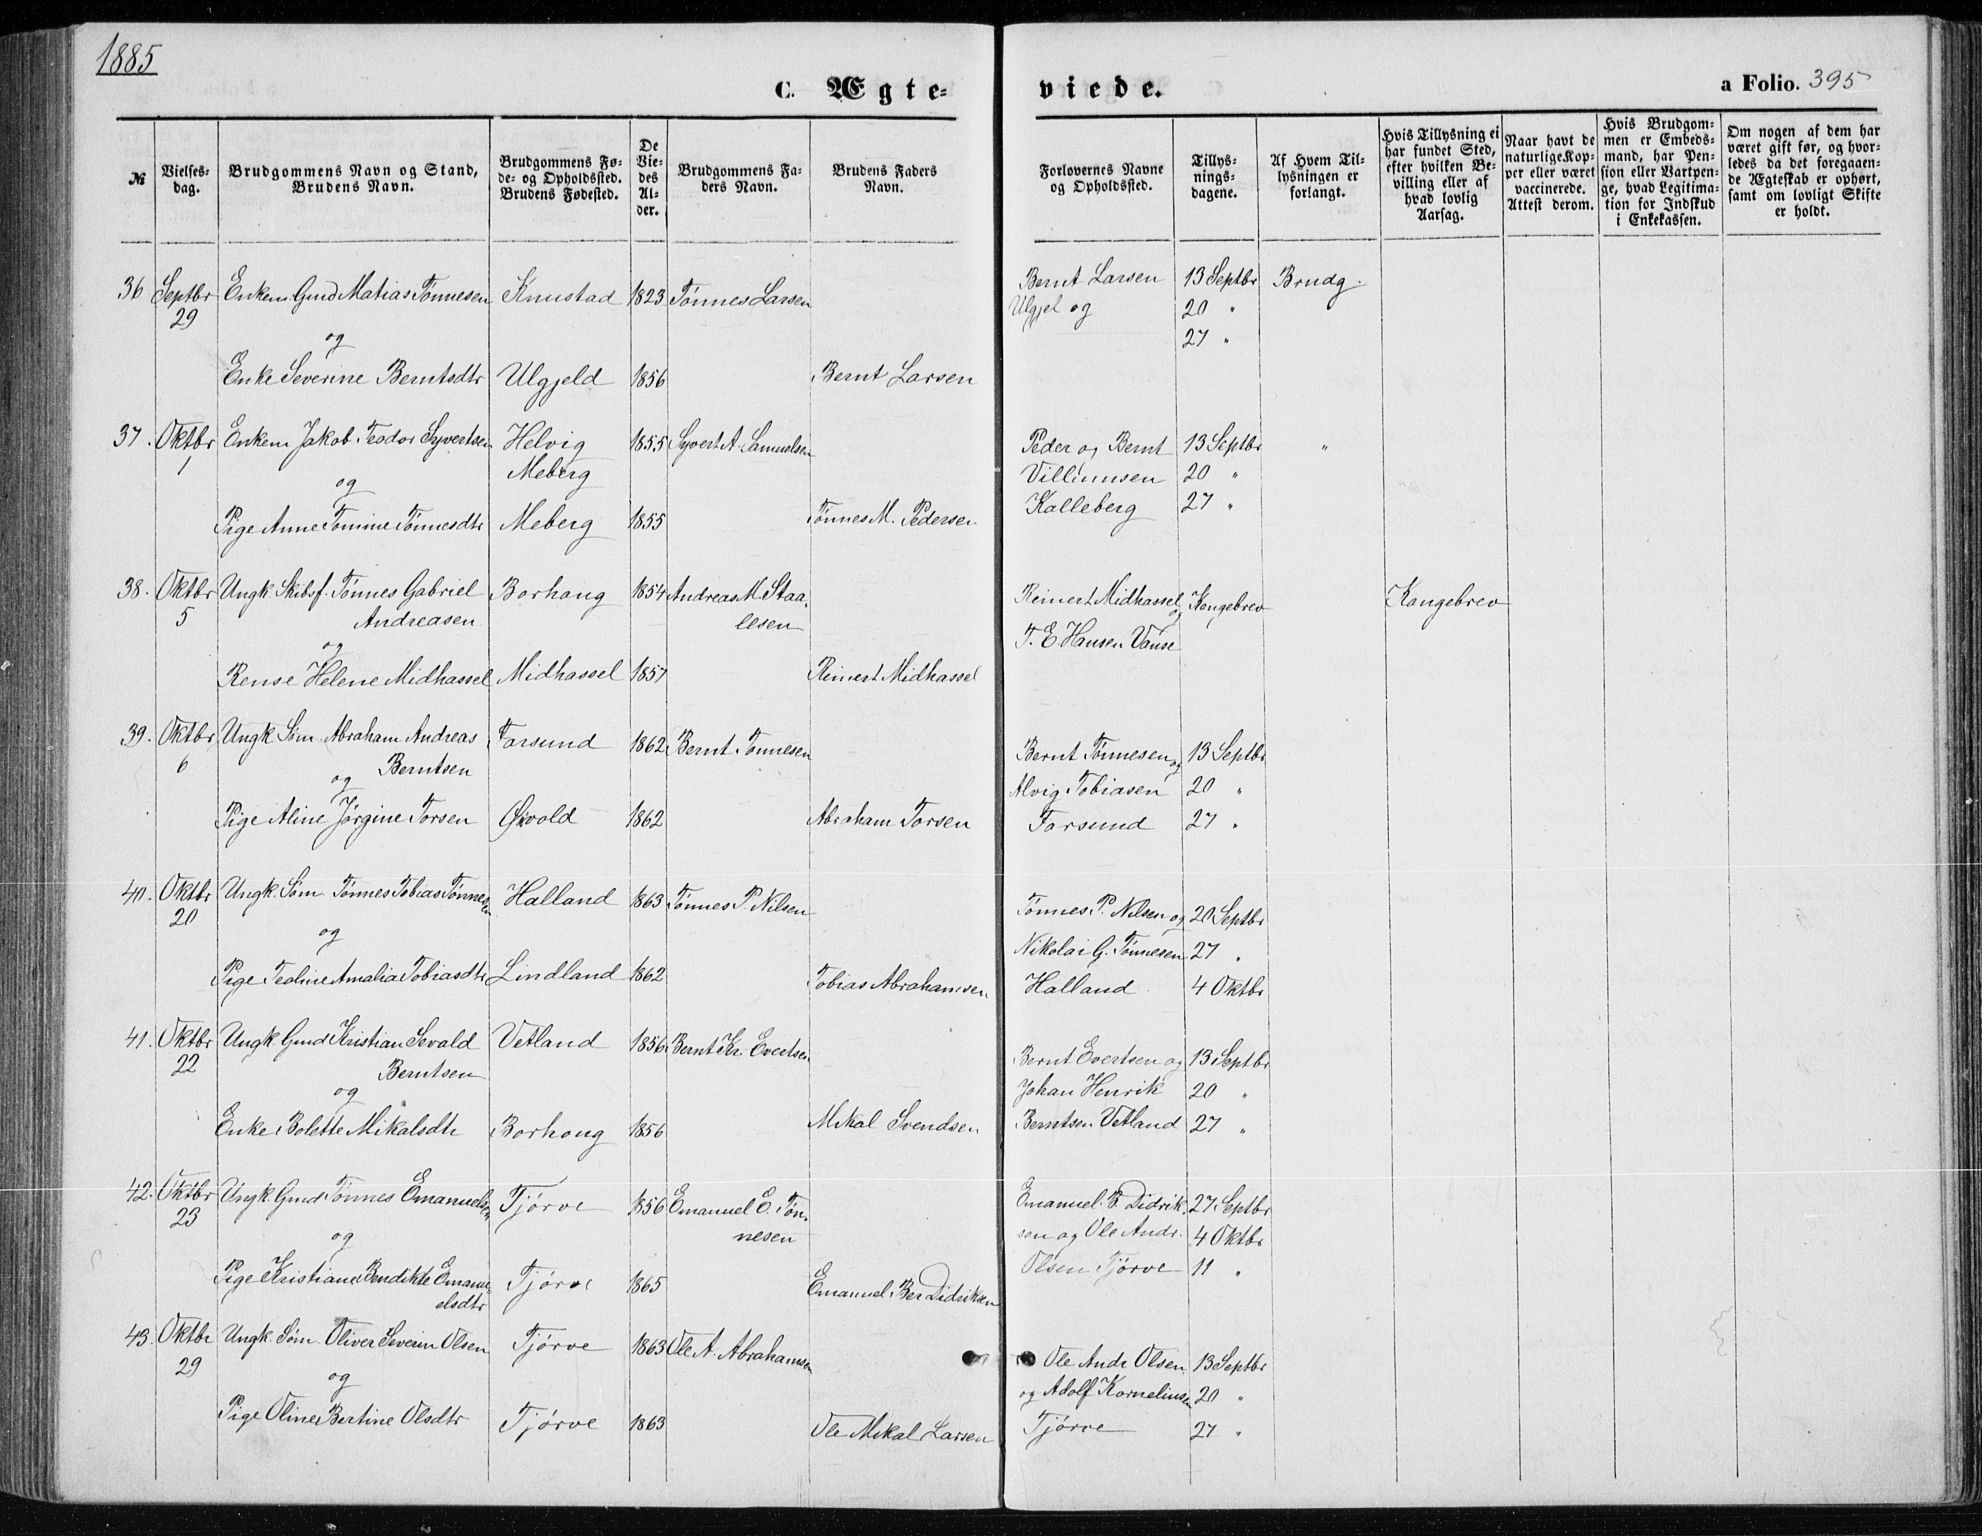 1885
C. Ægte-
viede.
a Folio. 395
№
Vielses-
dag.
Brudgommens Navn og Stand,
Brudens Navn.
Brudgommens Fø-
de- og Opholdssted.
Brudens Fødested.
De
Vie-
des
Al-
der.
Brudgommens Fa-
ders Navn.
Brudens Faders
Navn.
Forlovernes Navne
og Opholdssted.
Tillys-
nings-
dagene.
Af Hvem Til-
lysningen er
forlangt.
Hvis Tillysning ei
har fundet Sted,
efter hvilken Be-
villing eller af
hvad lovlig
Aarsag.
Naar havt de
naturlige Kop-
per eller været
vaccinerede.
Attest derom.
Hvis Brudgom-
men er Embeds-
mand, har Pen-
sion eller Vartpen-
ge, hvad Legitima-
tion for Indskud
i Enkekassen.
Om nogen af dem har
været gift før, og hvor-
ledes da det foregaaen-
de Ægteskab er ophørt,
samt om lovligt Skifte
er holdt.
36 Septbr Enkem. Gmd Matias Tønnesen Knustad 1823 Tønnes Larsen Bernt Larsen 13 Septbr Brudg.
29 Ulgjel og 20 "
og 27 "
Enke Severine Berntsdtr Ulgjeld 1856 Bernt Larsen
37. Oktbr Enkem Jakob Teodor Syvertsen Helvig 1855 Syvert A. Samuelsen Peder og Bernt 13 Septbr "
1 Meberg Villumsen 20 "
og Kalleberg 27 "
Pige Anne Tomine Tønnesdtr Meberg 1855 Tønnes M. Pedersen
38. Oktbr Ungk. Skibsf. Tønnes Gabriel Borhaug 1854 Andreas M. Staa- Reinert Midhassel og Kongebrev Kongebrev
5 Andreasen lesen T. E. Hansen Vanse
og
Rense Helene Midhassel Midhassel 1857 Reinert Midhassel
39. Oktbr Ungk. Søm. Abraham Andreas Farsund 1862 Bernt Tønnesen Bernt Tønnesen og 13 Septbr
6 Berntsen Alvig Tobiasen 20 "
og
Pige Aline Jørgine Torsen Øivold 1862 Abraham Torsen Farsund 27 "
40. Oktbr Ungk. Søm. Tønnes Tobias Tønnesen Halland 1863 Tønnes P. Nilsen Tønnes P. Nilsen og 20 Septbr
20 Nikolai G. Tønnesen 27 "
og
Pige Teoline Amalia Tobiasdtr Lindland 1862 Tobias Abrahamsen Halland 4 Oktbr
41. Oktbr Ungk Gmd Kristian Sevald Vetland 1856 Bernt Kr. Evertsen Bernt Evertsen og 13 Septbr
22 Berntsen Johan Henrik 20 "
og
Enke Bolette Mikalsdtr Borhaug 1856 Mikal Svendsen Berntsen Vetland 27 "
42. Oktbr Ungk. Gmd Tønnes Emanuelsen Tjørve 1856 Emanuel E. Tøn- Emanuel B. Didrik- 27 Septbr
23 nesen sen og Ole Andr. 4 Oktbr
og Olsen Tjørve 11 "
Pige Kristiane Bendikte Emanu- Tjørve 1865 Emanuel Ber Didriksen
elsdtr
43. Oktbr Ungk. Søm. Oliver Severin Olsen Tjørve 1863 Ole A. Abrahamsen Ole Andr Olsen 13 Septbr
29 og Adolf Korneliussen 20 "
og
Pige Oline Bertine Olsdtr Tjørve 1863 Ole Mikal Larsen Tjørve 27 "